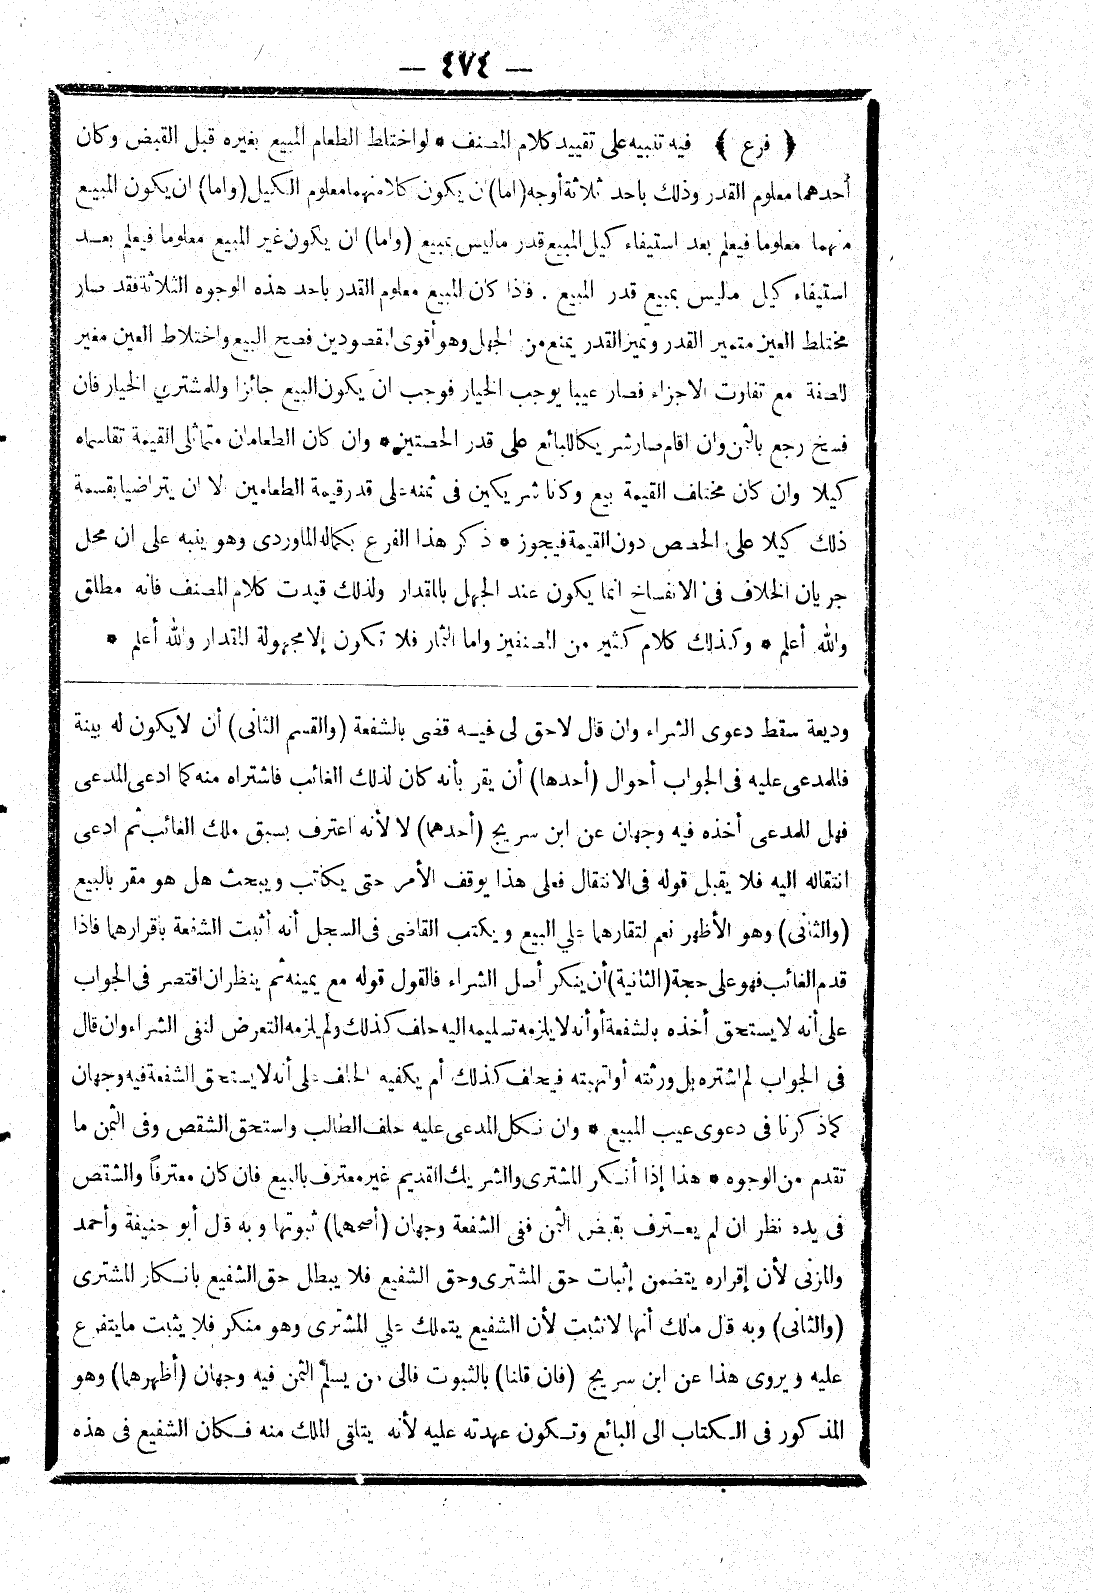 — ٤٧٤ —
﴿ فرع ﴾ فيه تنبيه على تقييد كلام المصنف * لو اختلط الطعام المبيع بغيره قبل القبض وكان
أحدهما معلوم القدر وذلك باحد ثلاثة أوجه (اما) ان يكون كلا منهما معلوم الكيل (واما) ان يكون المبيع
منهما معلوما فيعلم بعد استيفاء كيل المبيع قدر ماليس بمبيع (واما) ان يكون غير المبيع معلوما فيعلم بعد
استيفاء كيل ماليس بمبيع قدر المبيع . فاذا كان المبيع معلوم القدر باحد هذه الوجوه الثلاثة فقد صار
مختلط العين متميز القدر وتميز القدر يمنع من الجهل وهو أقوى المقصودين فصح البيع واختلاط العين مغير
للصفة مع تفاوت الاجزاء فصار عيبا يوجب الخيار فوجب ان يكون البيع جائزا وللمشتري الخيار فان
فسخ رجع بالثمن وان اقام صار شريكا للبائع على قدر الحصتين * وان كان الطعامان متماثلى القيمة تقاسماه
كيلا وان كان مختلف القيمة بيع وكانا شريكين فى ثمنه على قدر قيمة الطعامين الا ان يتراضيا بقسمة
ذلك كيلا على الحصص دون القيمة فيجوز * ذكر هذا الفرع بكماله الماوردى وهو ينبه على ان محل
جريان الخلاف فى الانفساخ انما يكون عند الجهل بالمقدار ولذلك قيدت كلام المصنف فانه مطلق
والله أعلم * وكذلك كلام كثير من المصنفين واما الثمار فلا تكون إلا مجهولة المقدار والله أعلم *
وديعة سقط دعوى الشراء وان قال لاحق لى فيه قضى بالشفعة (والقسم الثانى) أن لايكون له بينة
فللمدعى عليه فى الجواب أحوال (أحدها) أن يقر بأنه كان لذلك الغائب فاشتراه منه كما ادعى المدعى
فهل للمدعى أخذه فيه وجهان عن ابن سريج (أحدهما) لا لأنه اعترف بسبق ملك الغائب ثم ادعى
انتقاله اليه فلا يقبل قوله فى الانتقال فعلى هذا يوقف الأمر حتى يكاتب ويبحث هل هو مقر بالبيع
(والثانى) وهو الأظهر نعم لتقارهما علي البيع ويكتب القاضى فى السجل أنه أثبت الشفعة باقرارهما فاذا
قدم الغائب فهو على حجة (الثانية) أن ينكر أصل الشراء فالقول قوله مع يمينه ثم ينظر ان اقتصر فى الجواب
على أنه لا يستحق أخذه بالشفعة أو أنه لا يلزمه تسليمه اليه حلف كذلك ولم يلزمه التعرض لنفى الشراء وان قال
فى الجواب لم اشتره بل ورثته أو اتهبته فيحلف كذلك أم يكفيه الحلف على أنه لا يستحق الشفعة فيه وجهان
كما ذكرنا فى دعوى عيب المبيع * وان نكل المدعى عليه حلف الطالب واستحق الشقص وفى الثمن ما
تقدم من الوجوه * هذا إذا أنكر المشترى والشريك القديم غير معترف بالبيع فان كان معترفاً والشقص
فى يده نظر ان لم يعترف بقبض الثمن ففى الشفعة وجهان (أصحهما) ثبوتها وبه قال أبو حنيفة وأحمد
والمزنى لأن إقراره يتضمن إثبات حق المشترى وحق الشفيع فلا يبطل حق الشفيع بانكار المشترى
(والثانى) وبه قال مالك أنها لا تثبت لأن الشفيع يتملك علي المشترى وهو منكر فلا يثبت مايتفرع
عليه ويروى هذا عن ابن سريج (فان قلنا) بالثبوت فالى من يسلم الثمن فيه وجهان (أظهرهما) وهو
المذكور فى الكتاب الى البائع وتكون عهدته عليه لأنه يتلقى الملك منه فكان الشفيع فى هذه